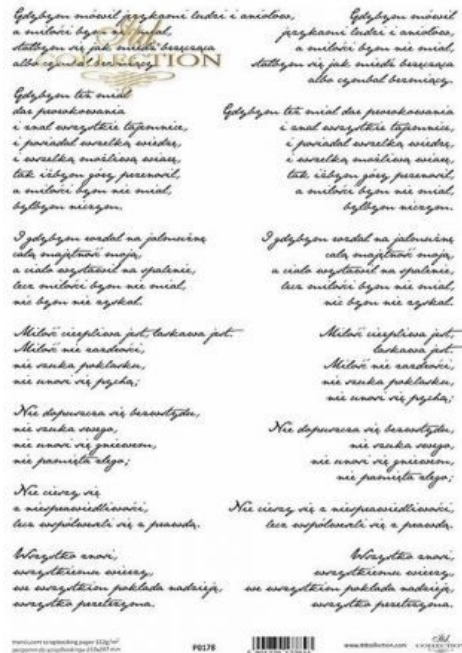 Gdybym mówił językami ludzi i aniołów,
a miłości bym nie miał,
stałbym się jak miedź brzęcząca
albo cymbał brzmiący.
COLLECTION
Gdybym też miał
dar prorokowania
i znał wszystkie tajemnice,
i posiadał wszelką wiedzę,
i wszelką możliwą wiarę,
tak iżbym góry przenosił,
a miłości bym nie miał,
byłbym niczym.
I gdybym rozdał na jałmużnę
całą majętność moją,
a ciało wystawił na spalenie,
lecz miłości bym nie miał,
nic bym nie zyskał.
Miłość cierpliwa jest, łaskawa jest.
Miłość nie zazdrości,
nie szuka poklasku,
nie unosi się pychą;
Nie dopuszcza się bezwstydu,
nie szuka swego,
nie unosi się gniewem,
nie pamięta złego;
Nie cieszy się
z niesprawiedliwości,
lecz współweseli się z prawdą.
Wszystko znosi,
wszystkiemu wierzy,
we wszystkim pokłada nadzieję,
wszystko przetrzyma.
Gdybym mówił
językami ludzi i aniołów,
a miłości bym nie miał,
stałbym się jak miedź brzęcząca
albo cymbał brzmiący.
Gdybym też miał dar prorokowania
i znał wszystkie tajemnice,
i posiadał wszelką wiedzę,
i wszelką możliwą wiarę,
tak iżbym góry przenosił,
a miłości bym nie miał,
byłbym niczym.
I gdybym rozdał na jałmużnę
całą majętność moją,
a ciało wystawił na spalenie,
lecz miłości bym nie miał,
nic bym nie zyskał.
Miłość cierpliwa jest,
łaskawa jest.
Miłość nie zazdrości,
nie szuka poklasku,
nie unosi się pychą;
Nie dopuszcza się bezwstydu,
nie szuka swego,
nie unosi się gniewem,
nie pamięta złego;
Nie cieszy się z niesprawiedliwości,
lecz współweseli się z prawdą.
Wszystko znosi,
wszystkiemu wierzy,
we wszystkim pokłada nadzieję,
wszystko przetrzyma.
scrapbooking paper
P0178
www.itdcollection.com
COLLECTION